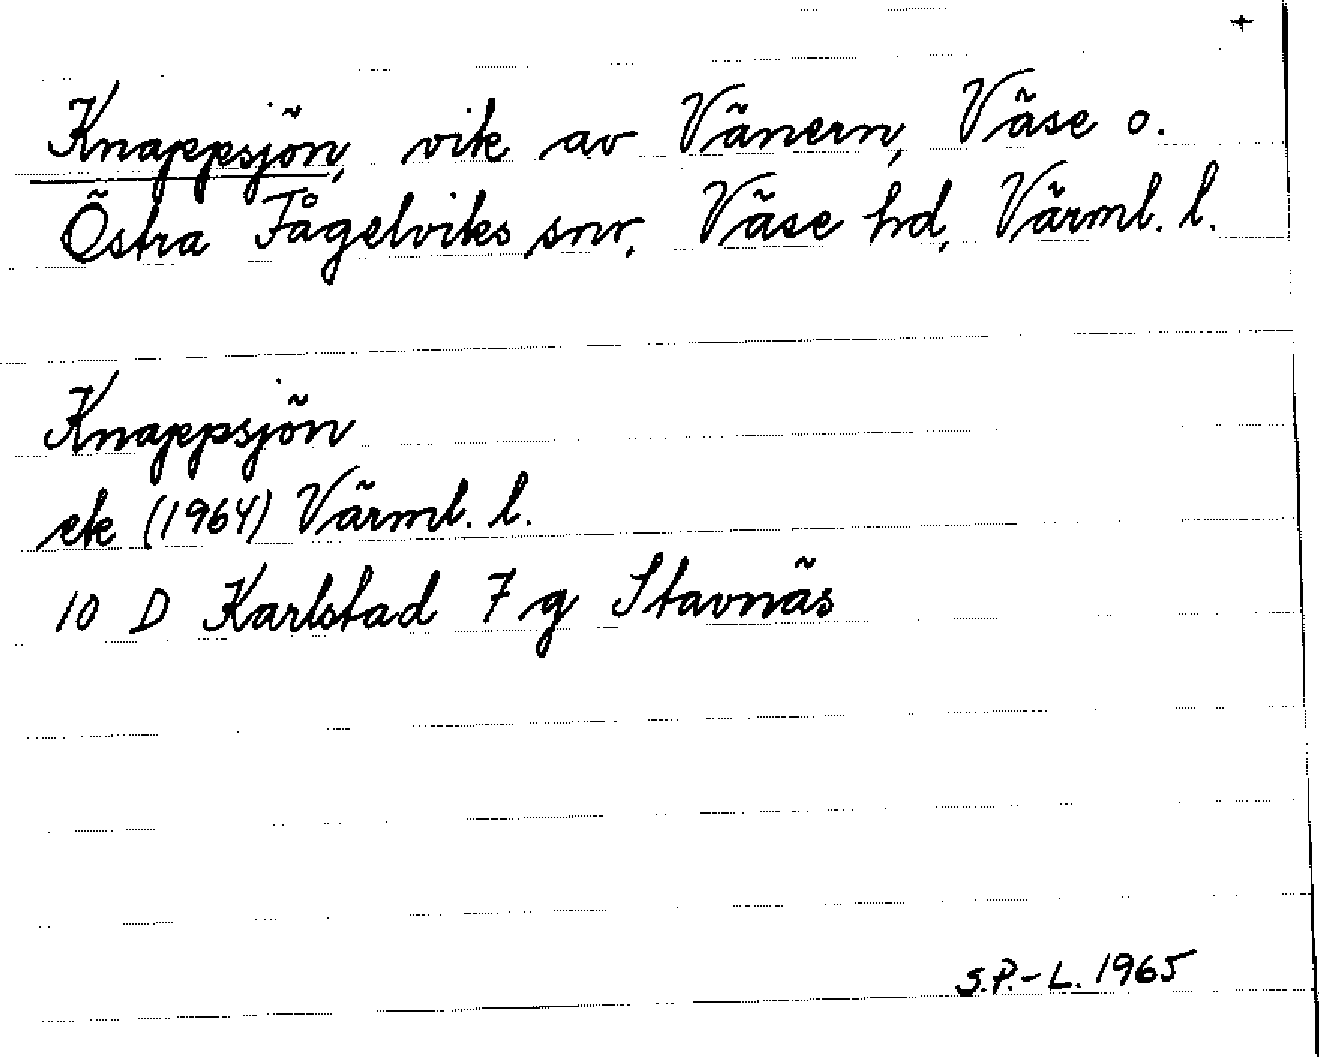 +
Knappsjön, vik av Vänern, Väse o.
Östra Fågelviks snr, Väse hd, Värml. l.
Knappsjön
ek (1964) Värml. l.
10 D Karlstad 7 g Stavnäs
S.P.-L. 1965